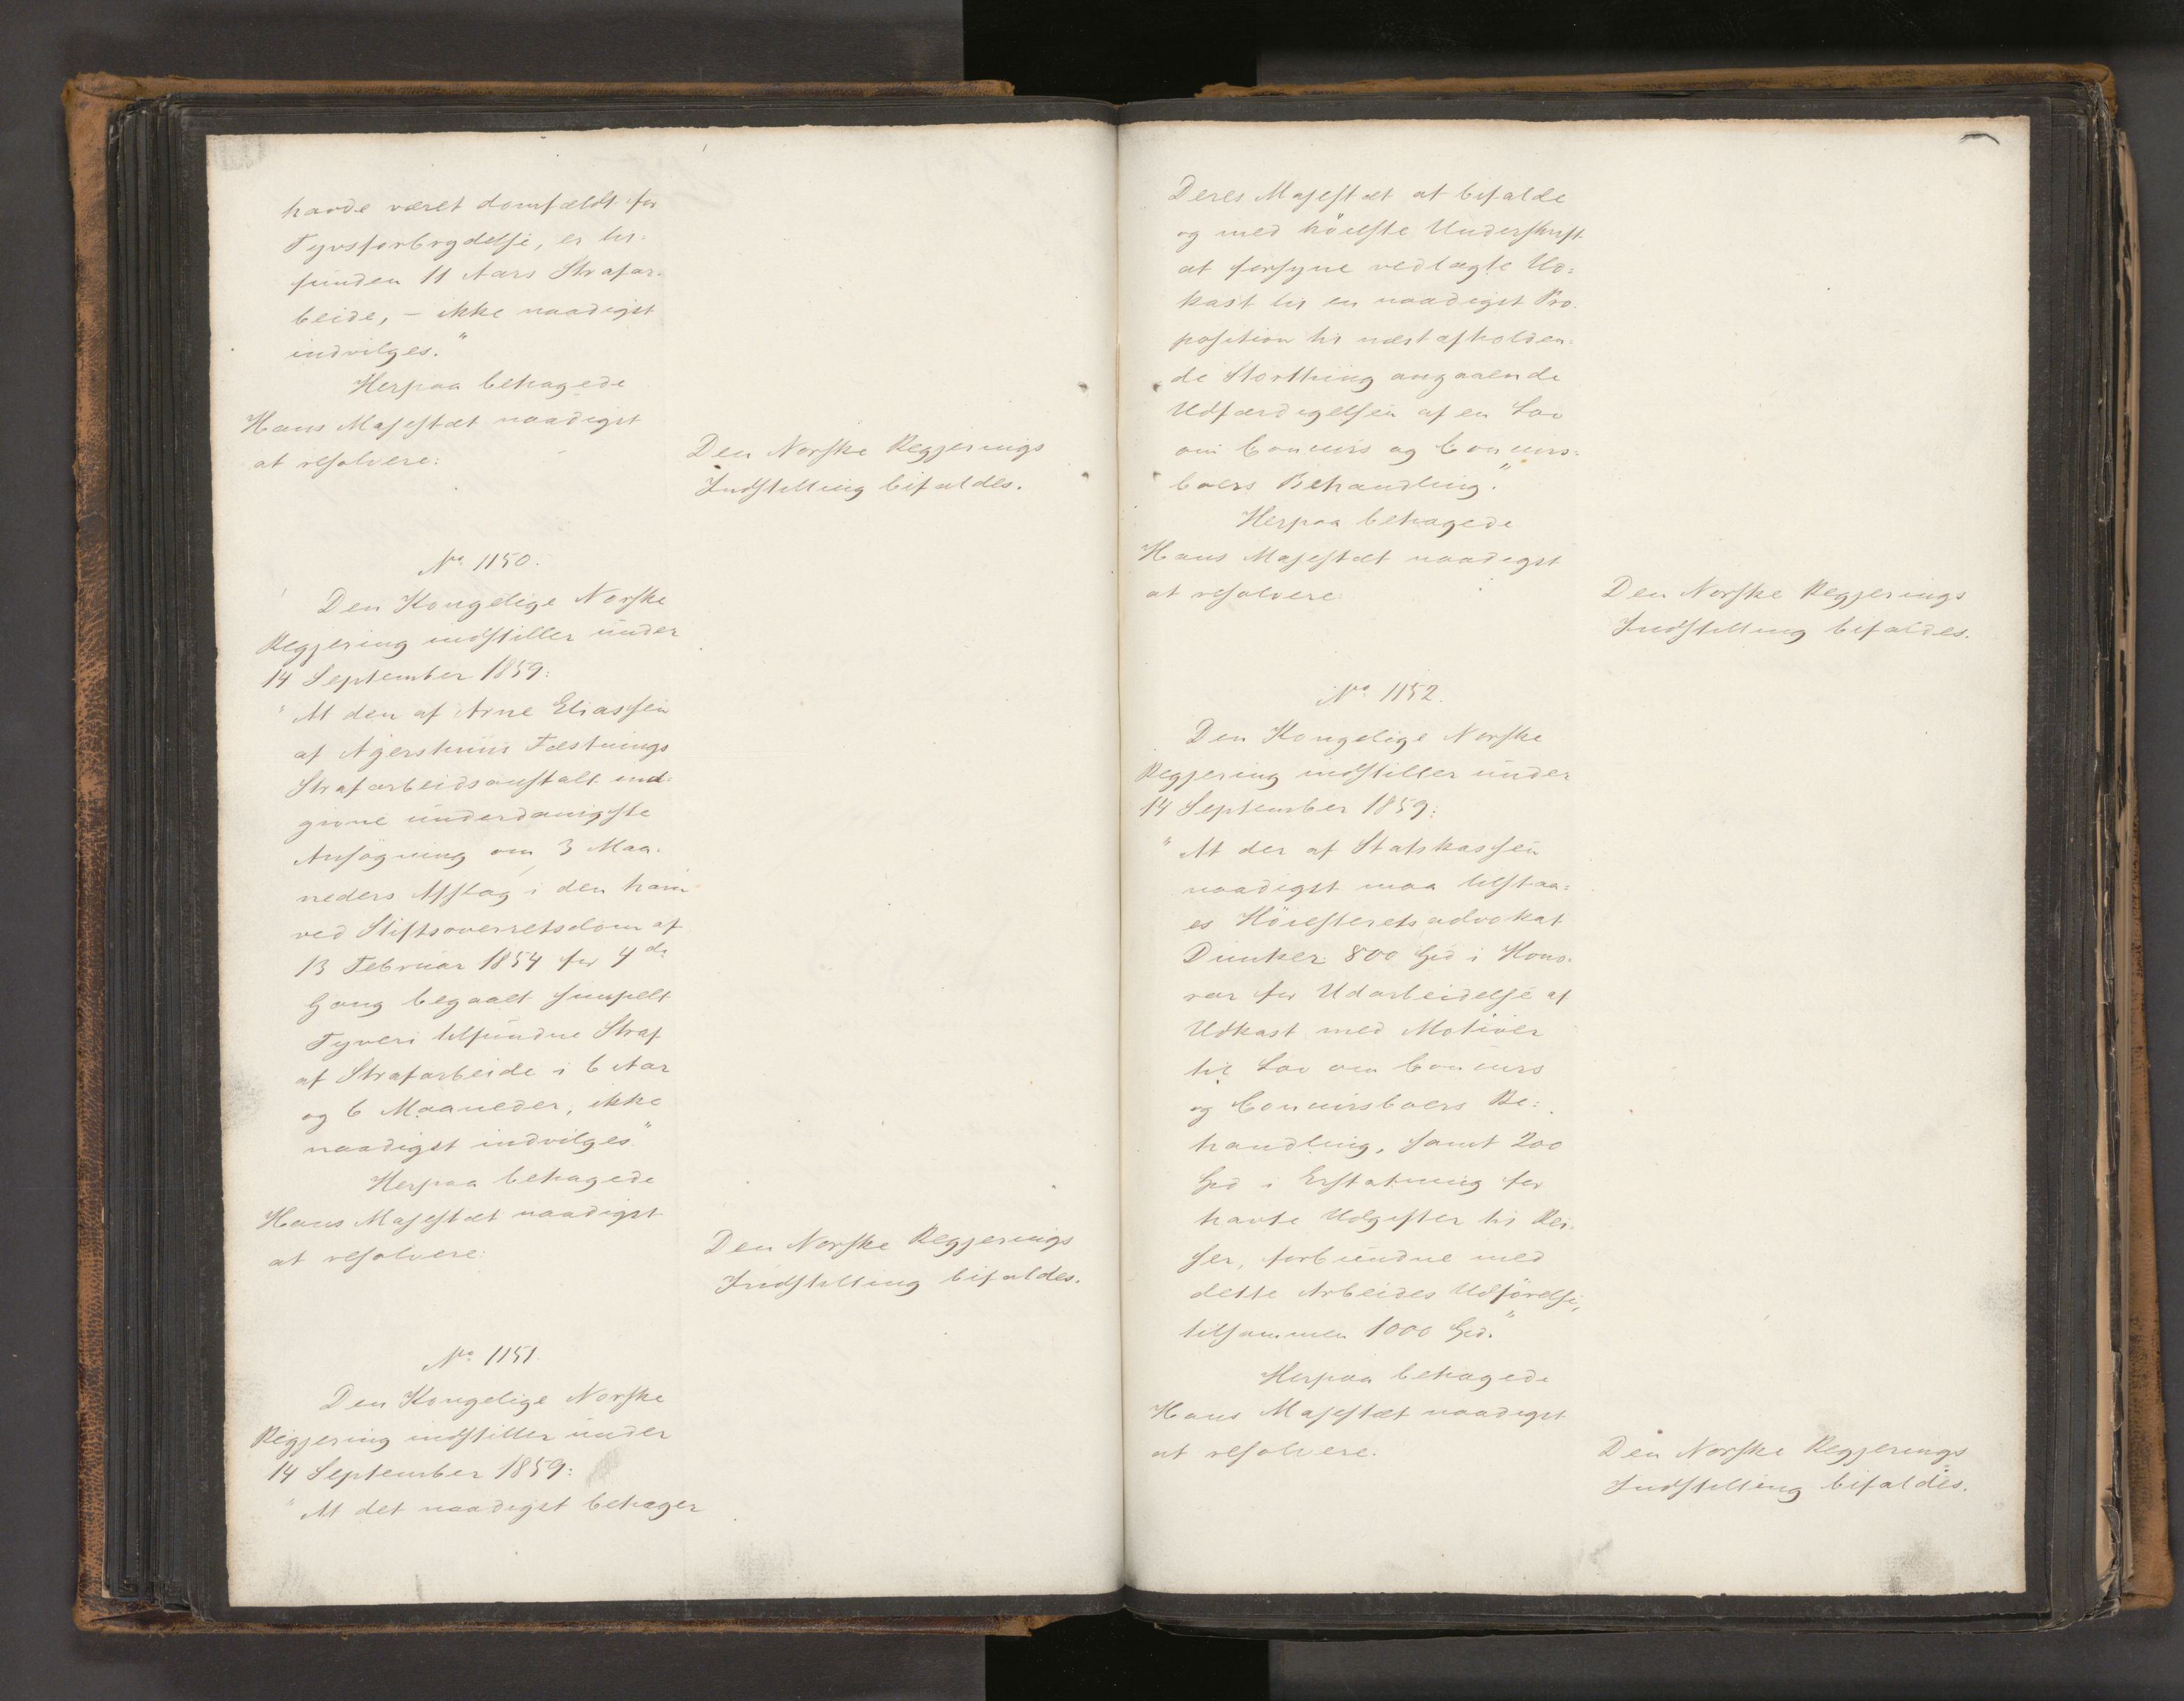 havde været domfældt for
Tyvsforbrydelse, er til-
funden 11 Aars Strafar-
beide, – ikke naadigst
indvilges."
Herpaa behagede
Hans Majestæt naadigst
at resolvere:
Den Norske Regjerings
Indstilling bifaldes.
No 1150.
Den Kongelige Norske
Regjering indstiller under
14 September 1859:
"At den af Arne Eliassen
af Agershuus Fæstnings
Strafarbeidsanstalt ind-
givne underdanigste
Ansögning om 3 Maa-
neders Afslag i den ham
ved Stiftsoverretsdom af
13 Februar 1854 for 4de
Gang begaaet simpelt
Tyveri tilfundne Straf
af Strafarbeide i 6 Aar
og 6 Maaneder, ikke
naadigst indvilges"
Herpaa behagede
Hans Majestæt naadigst
at resolvere:
Den Norske Regjerings
Indstilling bifaldes.
No 1151.
Den Kongelige Norske
Regjering indstiller under
14 September 1859:
"At det naadigst behager
Deres Majestæt at bifalde
og med höieste Underskrift
at forsyne vedlagte Ud-
kast til en naadigst Pro-
position til næst afholden-
de Storthing angaaende
Udfærdigelsen af en Lov
om Concurs og Concurs-
boers Behandling."
Herpaa behagede
Hans Majestæt naadigst
at resolvere:
Den Norske Regjerings
Indstilling bifaldes.
No 1152.
Den Kongelige Norske
Regjering indstiller under
14 September 1859:
"At der af Statskassen
naadigst maa tilstaa-
es Höiesteretsadvokat
Dunker 800 Spd i Hono-
rar for Udarbeidelse af
Udkast med Motiver
til Lov om Concurs
og Concursboers Be-
handling, samt 200
Spd i Erstatning for
havte Udgifter til Rei-
ser, forbundne med
dette Arbeides Udförelse,
tilsammen 1000 Spd."
Herpaa behagede
Hans Majestæt naadigst
at resolvere:
Den Norske Regjerings
Indstilling bifaldes.